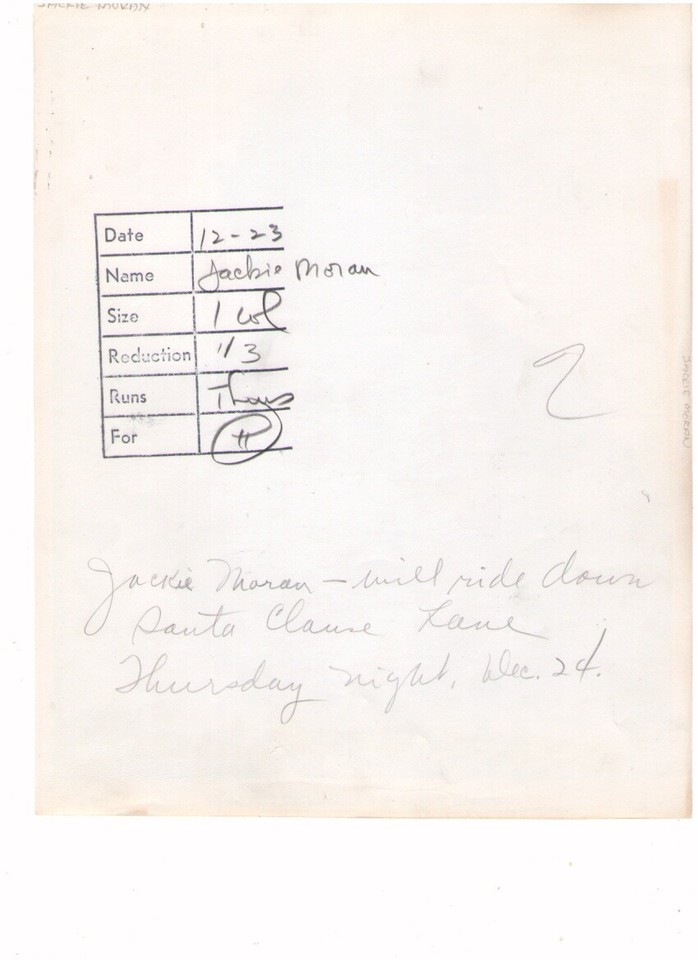 JACKIE MORAN
Date 12-23
Name Jackie Moran
Size 1 col
Reduction 1/3
Runs Thurs
For H
2
JACKIE MORAN
Jackie Moran – will ride down
Santa Clause Lane
Thursday night, Dec. 24.